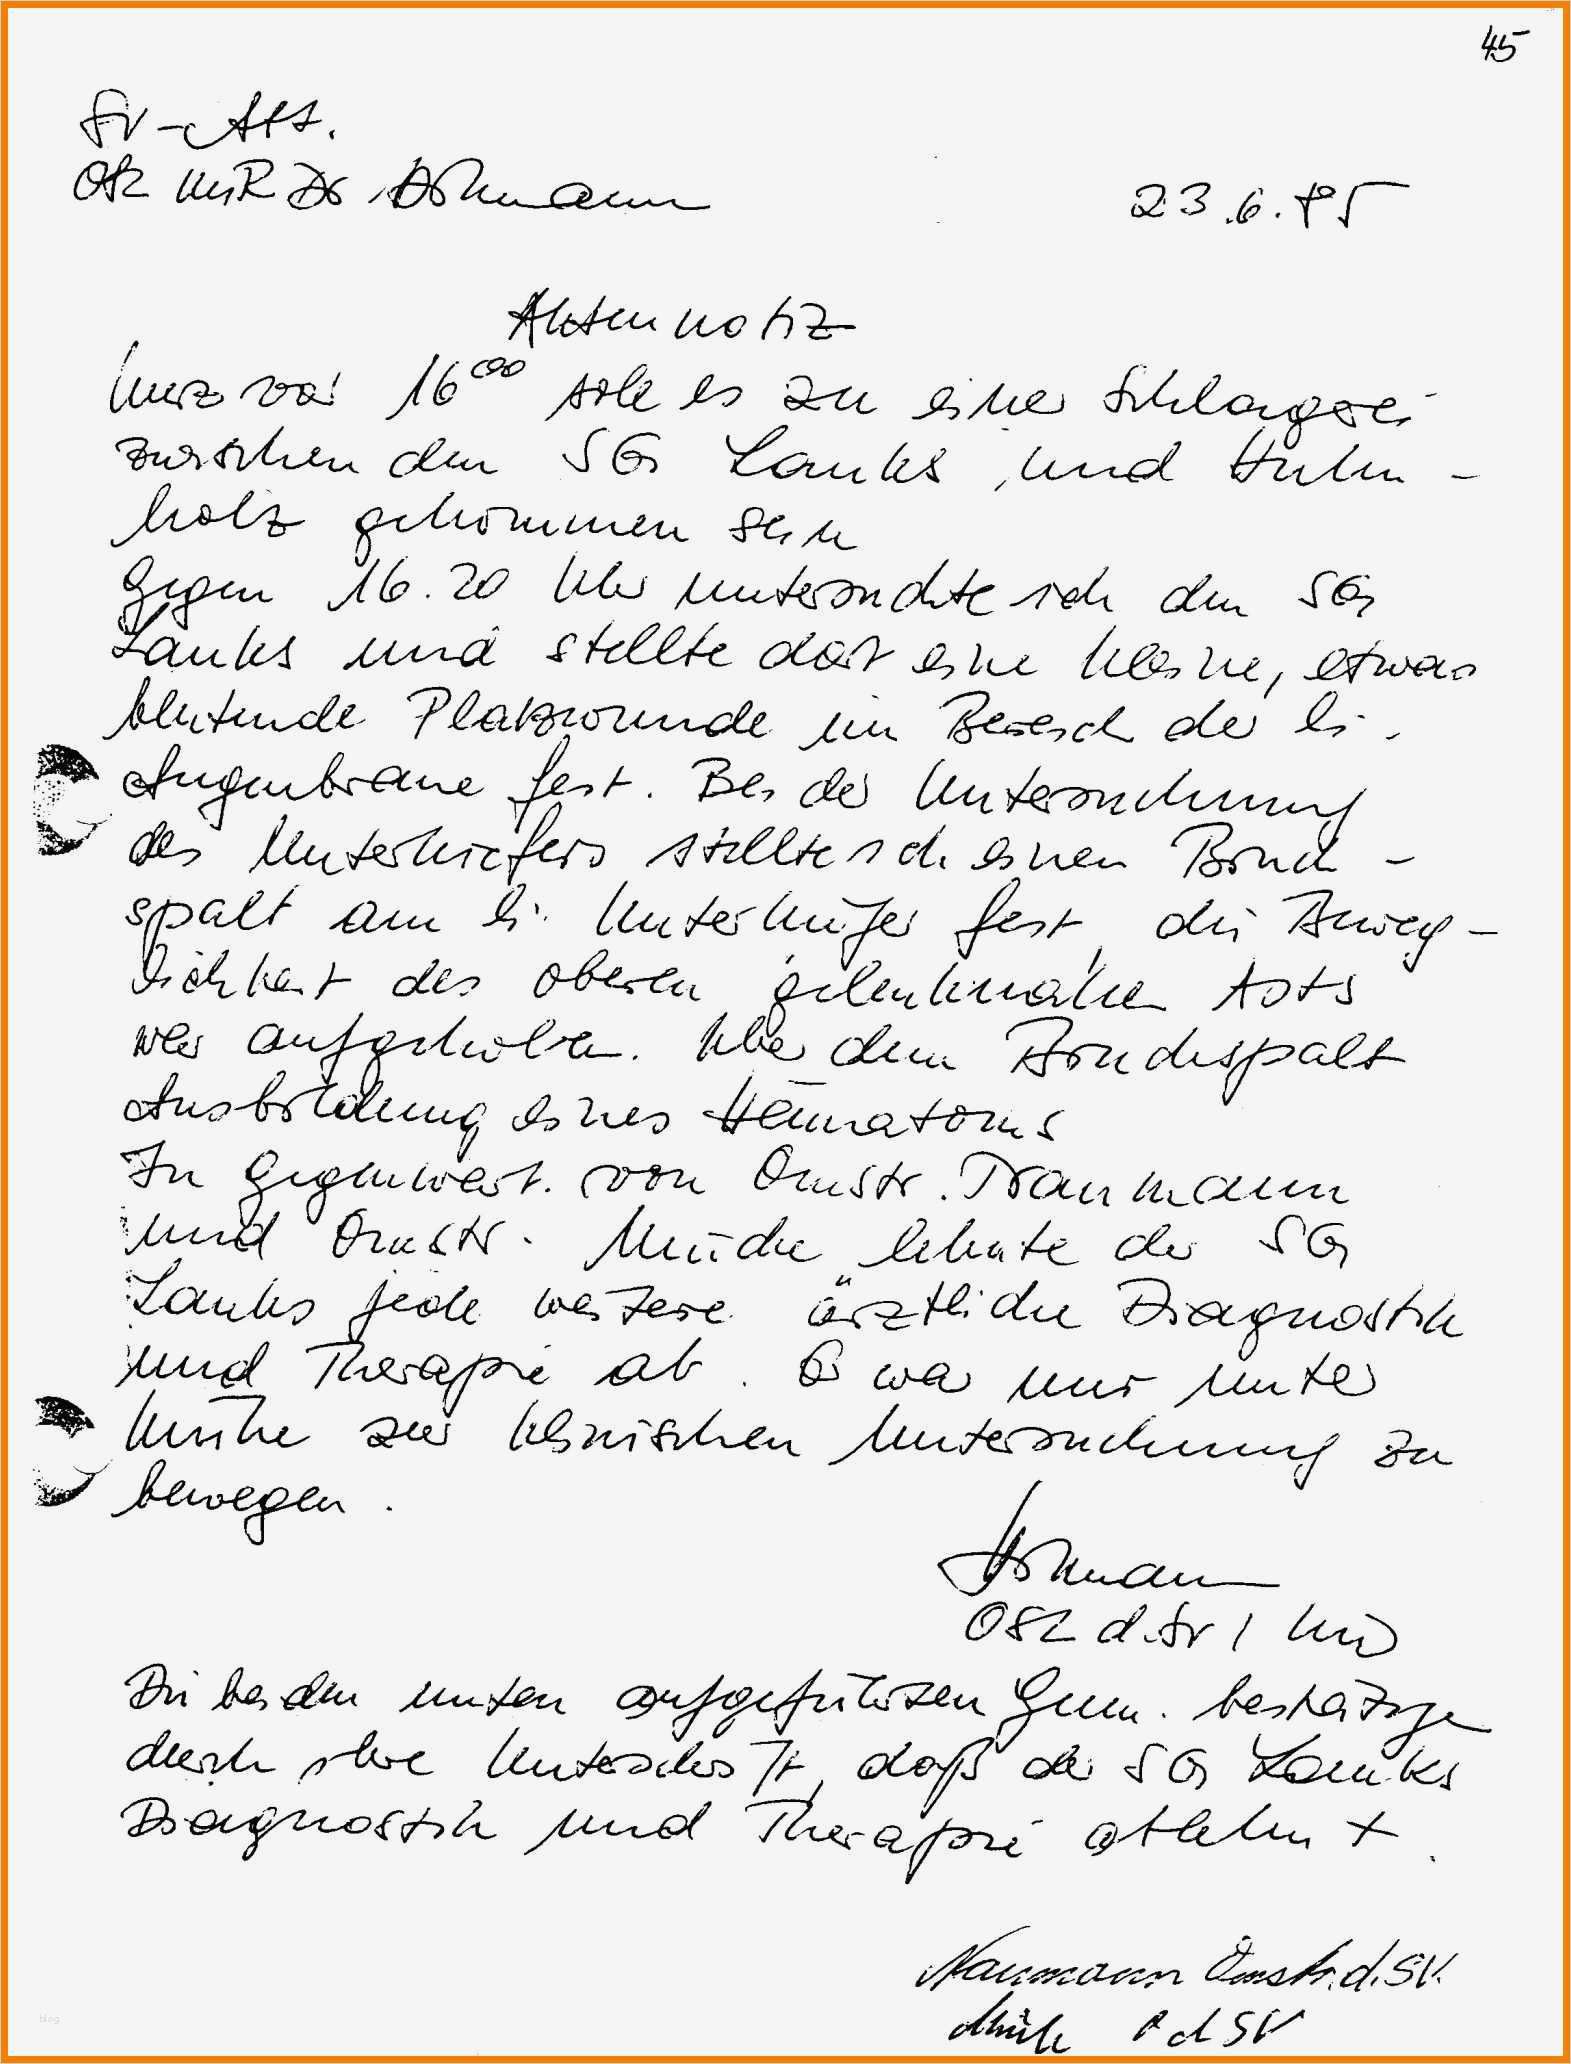 45
OSL MR Dr
23.6.85
Aktennotiz
Kurz vor 16⁰⁰ soll es zu einer Schlägerei
zwischen den SG Lauks, und Hulm-
holz gekommen sein
Gegen 16.20 Uhr untersuchte ich den SG
Lauks und stellte dort eine kleine, etwas
blutende Platzwunde im Bereich der li.
Augenbraue fest. Bei der Untersuchung
des Unterkiefers stellte ich einen Bruch-
spalt am li. Unterkiefer fest, die Beweg-
lichkeit des oberen gelenknahen Asts
war aufgehoben. Über dem Bruchspalt
Ausbildung eines Hämatoms
In Gegenwart von Omstr.
und Omstr. lehnte der SG
Lauks jede weitere ärztliche Diagnostik
und Therapie ab. Er war nur unter
Mühe zur klinischen Untersuchung zu
bewegen.
OSL d. SV / MD
Die beiden unten aufgeführten Genn. bestätigen
durch ihre Unterschrift, daß der SG Lauks
Diagnostik und Therapie ablehnt.
Naumann Omstr. d. SV.
d SV
blog